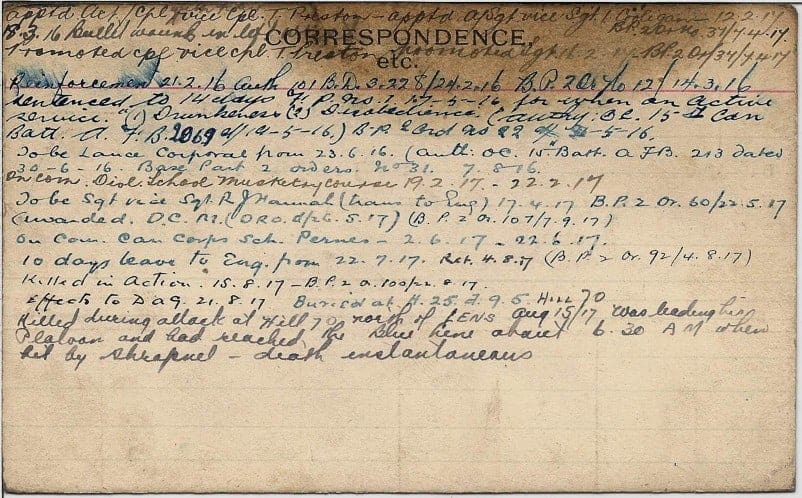 apptd Act/Cpl vice Cpl. T Preston - apptd a/Sgt vice Sgt. 12.2.17
18.3.16 Bullet wound in left B.P. 2 Or No. 37/7.4.17
CORRESPONDENCE,
Promoted cpl vice cpl. T. Preston promoted Sgt 12.2.17 - B.P. 2 Or/37/7.4.17
etc.
Reinforcement 21.2.16 Auth 101 B.D. 3.228/24.2.16 B.P. 2 Or No 12/14.3.16
sentenced to 14 days F.P. No. 1 17-5-16 for when on active
service. (1) Drunkeness (2) Disobedience (Authy: OC. 15th Can
Batt. A. F. B. 2069 d/19-5-16.) B.P. 2 Ord 22 -5-16.
To be Lance Corporal from 23.6.16. (Auth: OC. 15th Batt. A F.B. 213 dated
30-6-16. Base Part 2 orders. No 31. 7.8.16.
On com. Divl. School Musketry course 19.2.17. - 22.2.17
To be Sgt vice Sgt. R J Hannah (trans to Eng) 17.4.17 B.P. 2 Or. 60/22.5.17
(Awarded. D.C.M. (DRO. d/26.5.17) (B.P. 2 Or. 107/7.9.17)
On Com. Can Corps Sch. Pernes - 2.6.17 - 22.6.17.
10 days leave to Eng. from 22.7.17. Ret. 4.8.17 (B.P. 2 Or. 92/4.8.17)
Killed in Action. 15.8.17 - B.P. 2 O.100/22.8.17.
Effects to DAG. 21.8.17 Buried at H.25.d.9.5 Hill 70
Killed during attack at Hill 70 north of LENS Aug 15/17 was leading his
Platoon and had reached the blue line about 6.30 AM when
hit by shrapnel - death instantaneous